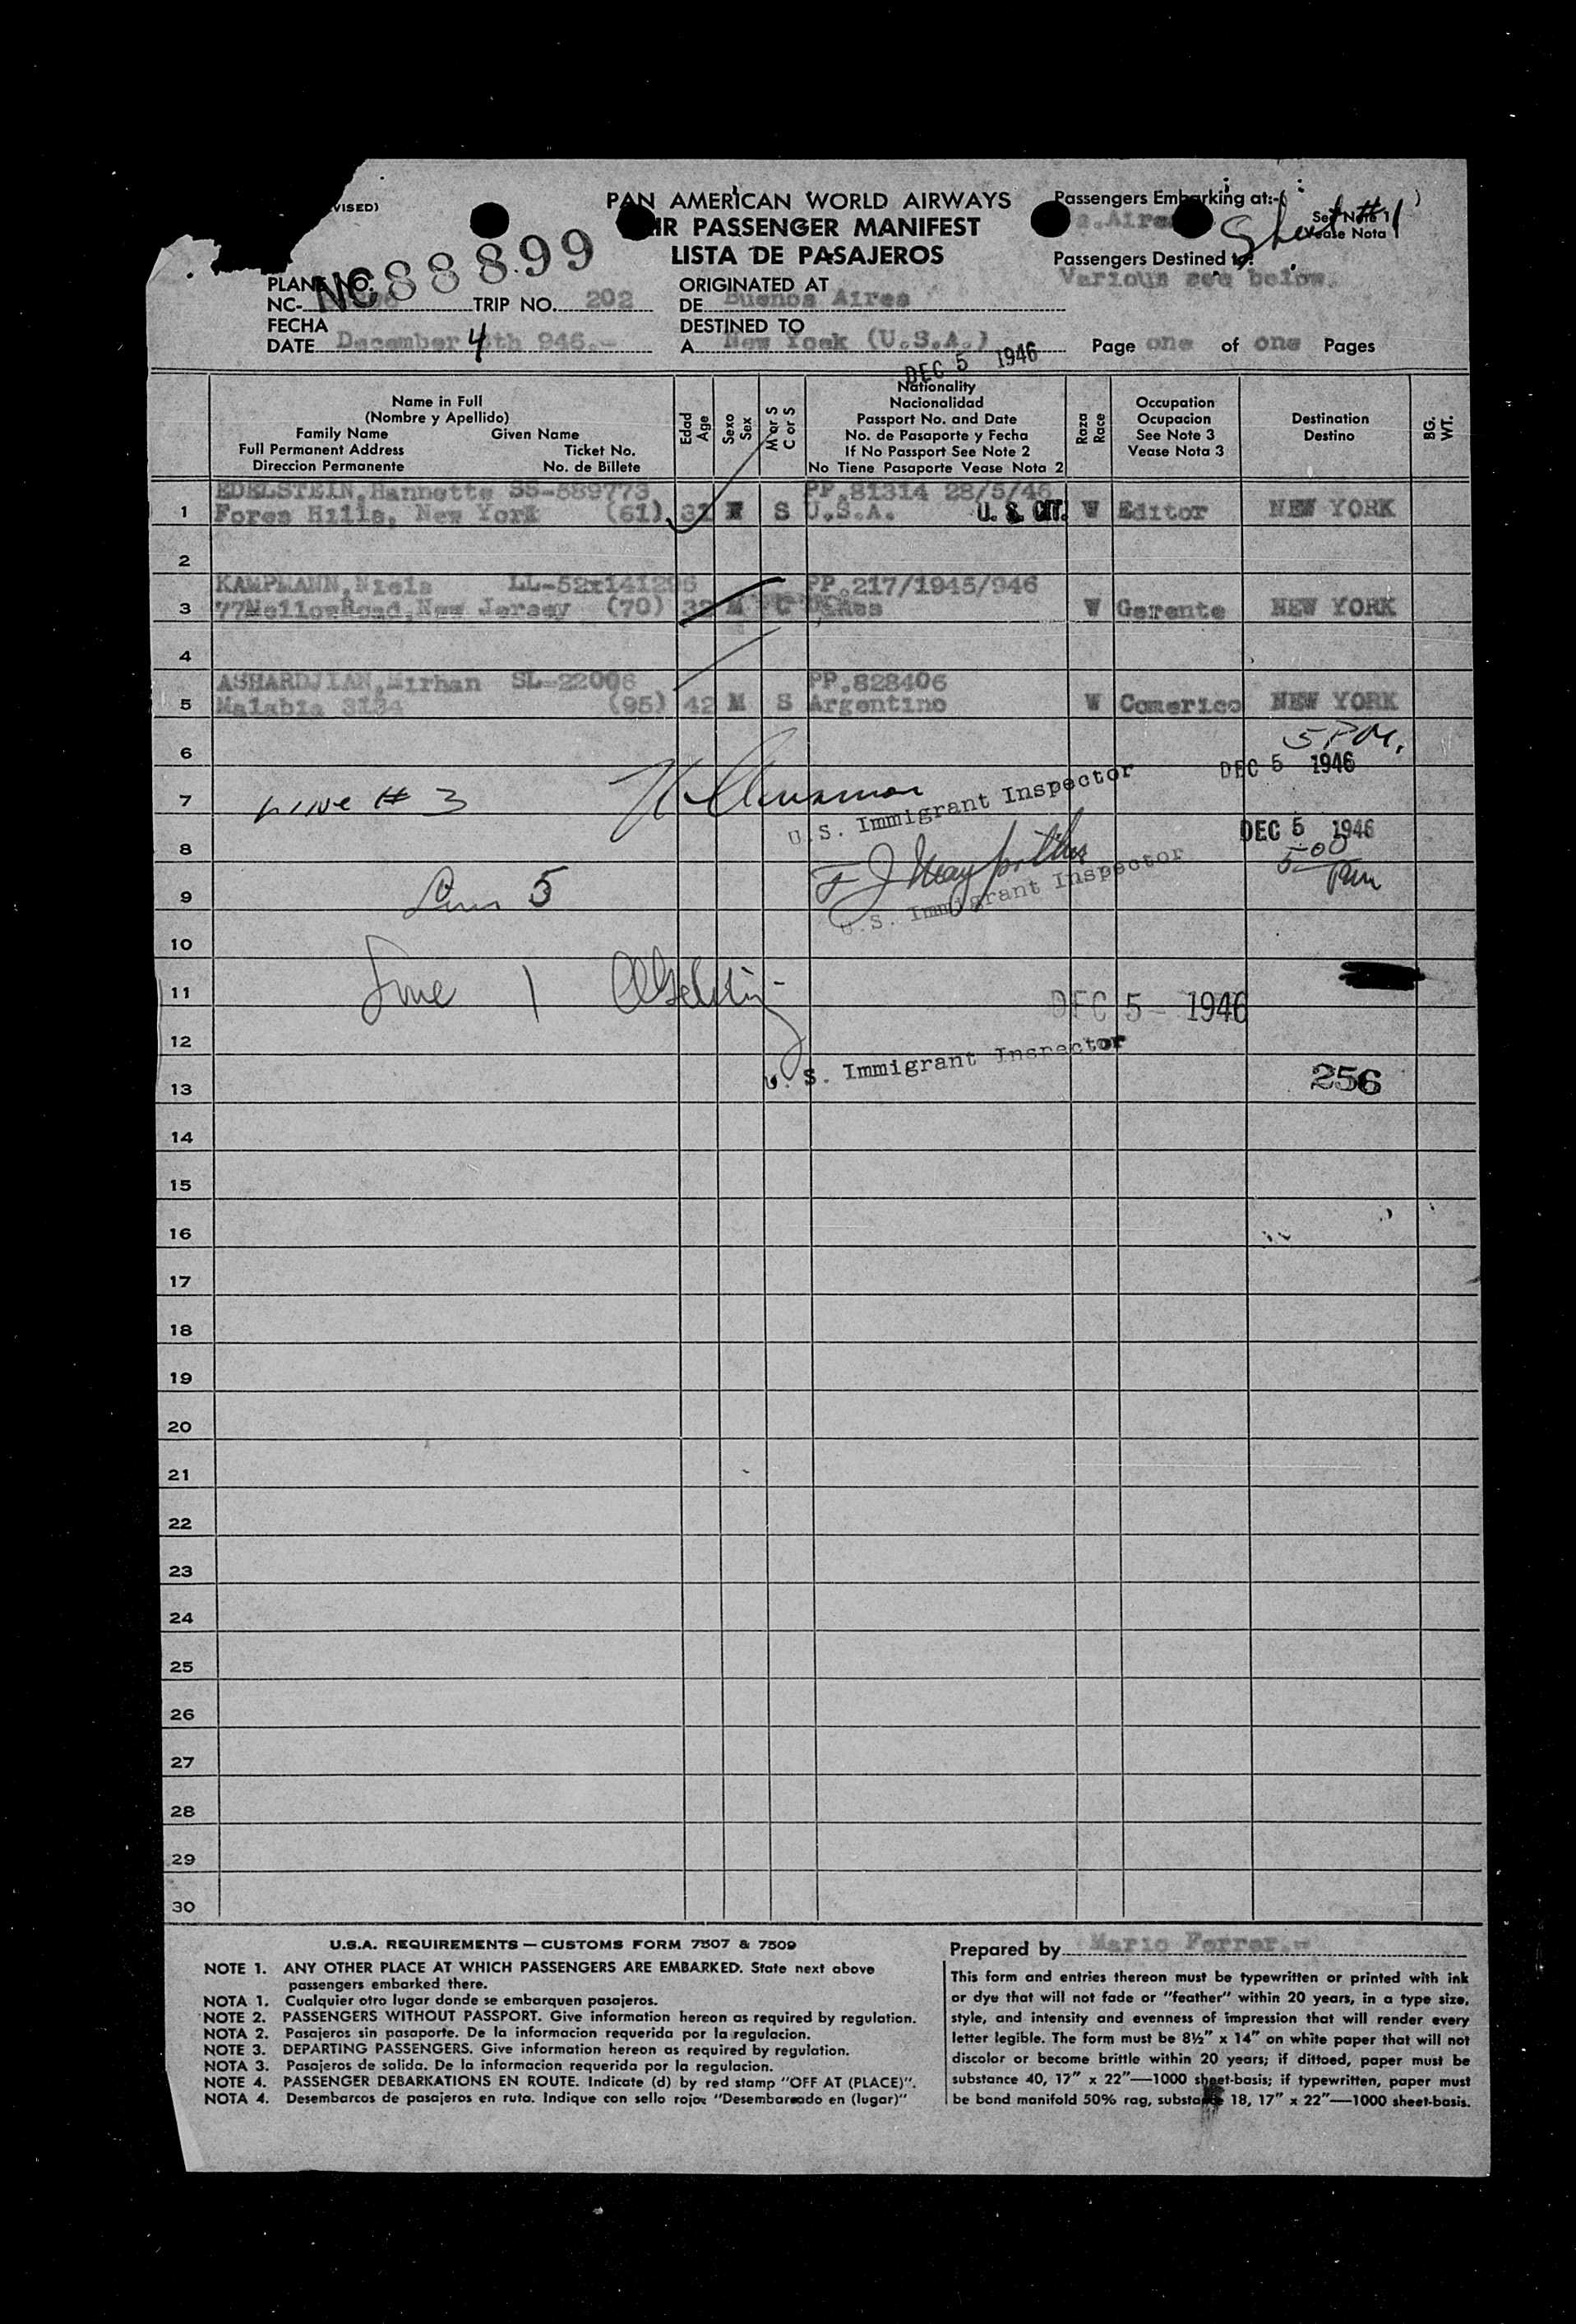 VISED)
PAN AMERICAN WORLD AIRWAYS
IR PASSENGER MANIFEST
LISTA DE PASAJEROS
Passengers Embarking at:-
Sheet #1
See Note 1
Vease Nota 1
Passengers Destined to:
Various see below.
PLANE NO.
NC-
NC88899
TRIP NO. 202
ORIGINATED AT
DE Buenos Aires
FECHA
DATE December 4 th 946.-
DESTINED TO
A New York (U.S.A.)
Page one of one Pages
DEC 5 1946
Name in Full
(Nombre y Apellido)
Family Name Given Name
Full Permanent Address Ticket No.
Direccion Permanente No. de Billete
Edad
Age
Sexo
Sex
M or S
C or S
Nationality
Nacionalidad
Passport No. and Date
No. de Pasaporte y Fecha
If No Passport See Note 2
No Tiene Pasaporte Vease Nota 2
Raza
Race
Occupation
Ocupacion
See Note 3
Vease Nota 3
Destination
Destino
BG.
WT.
EDELSTEIN,Hannette SS-889773 PP.81314 28/5/46
1 Fores Hills, New York (61) 31 F S U.S.A. U. S. CIT. W Editor NEW YORK
2
KAMPMANN,Niels PP.217/1945/946
3 New Jersey (70) 32 M C W Gerente NEW YORK
4
ASHARDJIAN,Mirhan SL-22006 PP.828406
5 Malabia (95) 42 M S Argentino W Comerico NEW YORK
6 5 PM.
DEC 5 1946
7 Line # 3
U.S. Immigrant Inspector
DEC 5 1946
8 5:00
PM
9 Line 5
U.S. Immigrant Inspector
10
11 Line 1
DEC 5 - 1946
12
U. S. Immigrant Inspector
13 256
14
15
16
17
18
19
20
21
22
23
24
25
26
27
28
29
30
U.S.A. REQUIREMENTS — CUSTOMS FORM 7507 & 7509
NOTE 1. ANY OTHER PLACE AT WHICH PASSENGERS ARE EMBARKED. State next above
passengers embarked there.
NOTA 1. Cualquier otro lugar donde se embarquen pasajeros.
NOTE 2. PASSENGERS WITHOUT PASSPORT. Give information hereon as required by regulation.
NOTA 2. Pasajeros sin pasaporte. De la informacion requerida por la regulacion.
NOTE 3. DEPARTING PASSENGERS. Give information hereon as required by regulation.
NOTA 3. Pasajeros de salida. De la informacion requerida por la regulacion.
NOTE 4. PASSENGER DEBARKATIONS EN ROUTE. Indicate (d) by red stamp "OFF AT (PLACE)".
NOTA 4. Desembarcos de pasajeros en ruta. Indique con sello rojo: "Desembarcado en (lugar)"
Prepared by Mario Ferrer.-
This form and entries thereon must be typewritten or printed with ink
or dye that will not fade or "feather" within 20 years, in a type size,
style, and intensity and evenness of impression that will render every
letter legible. The form must be 8½" x 14" on white paper that will not
discolor or become brittle within 20 years; if dittoed, paper must be
substance 40, 17" x 22"—1000 sheet-basis; if typewritten, paper must
be bond manifold 50% rag, substance 18, 17" x 22"—1000 sheet-basis.